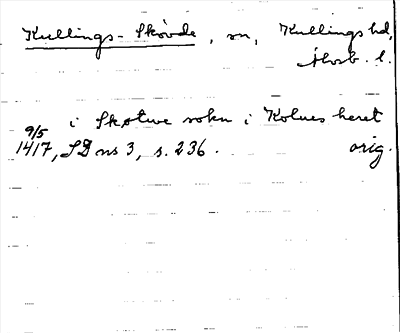 Kullings-Skövde, sn, Kullings hd,
Älvsb. l.
i Skøtwe sokn i Kolnes heret
9/5
1417, SD ns 3, s. 236. orig.